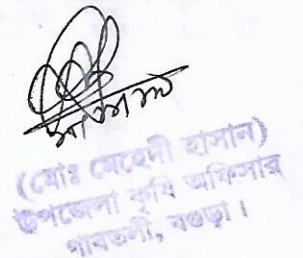 (মোঃ মেহেদী হাসান)
উপজেলা কৃষি অফিসার
গাবতলী, বগুড়া।